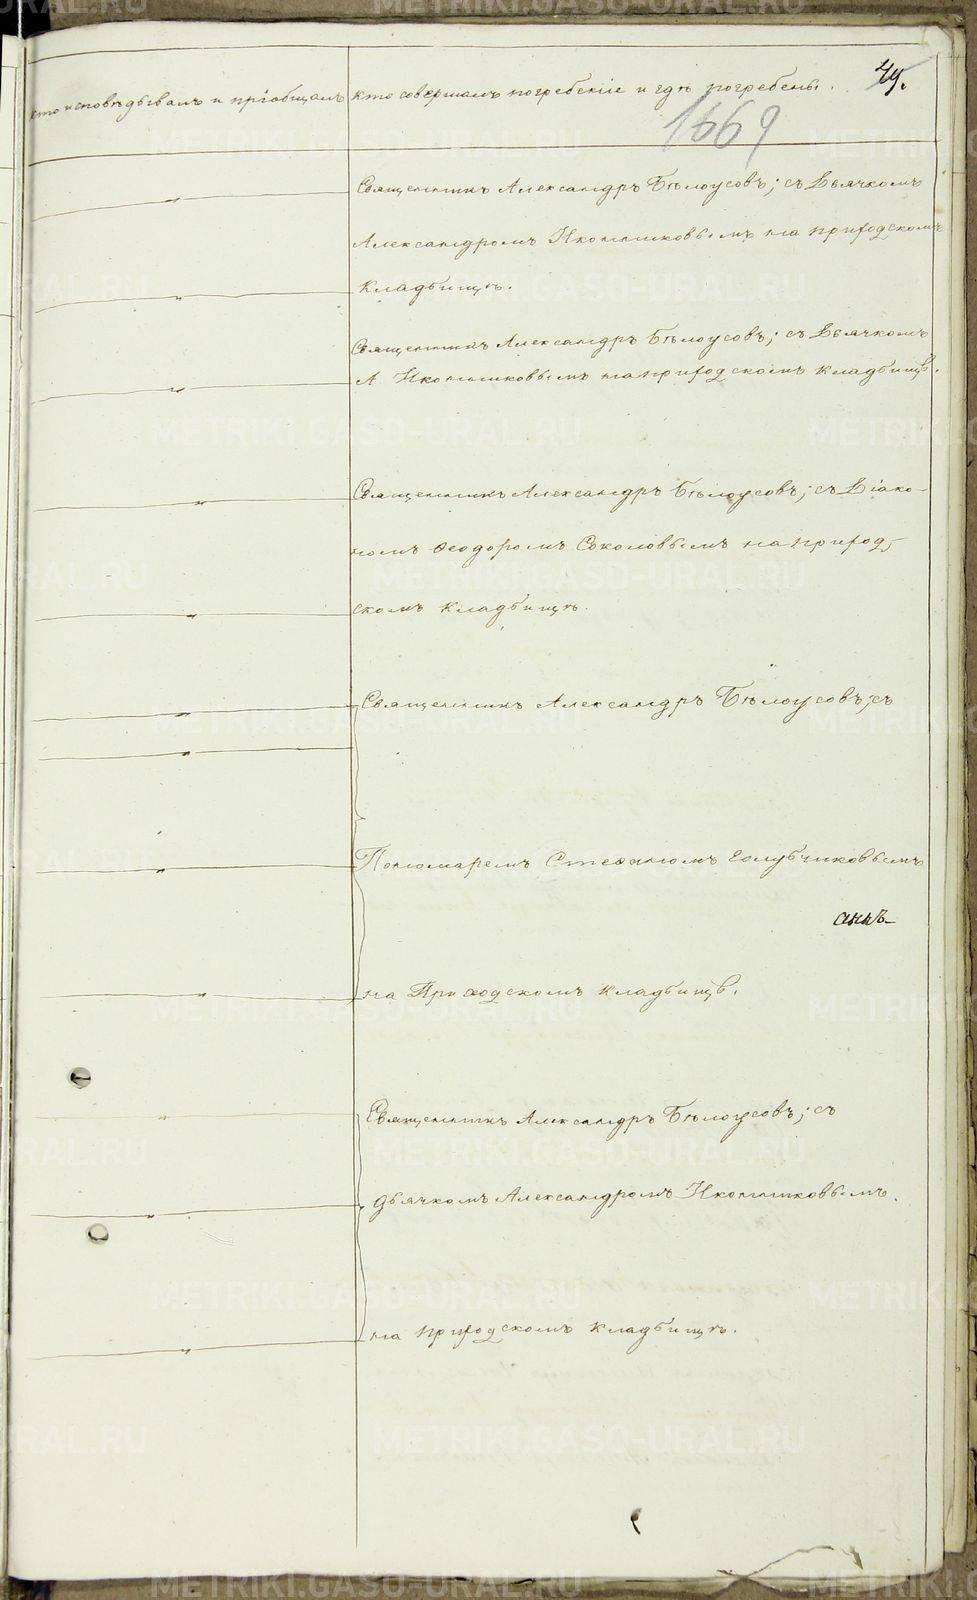 44.
кто исповѣдывалъ и пріобщалъ
кто совершалъ погребеніе и гдѣ погребены.
1669
Священникъ Александръ Бѣлоусовъ; съ Дьячкомъ
Александромъ Иконниковымъ на приходскомъ
кладбищѣ.
Священникъ Александръ Бѣлоусовъ; съ Дьячкомъ
А Иконниковымъ на приходскомъ кладбищѣ.
Священникъ Александръ Бѣлоусовъ; съ Діако-
номъ Ѳеодоромъ Соколовымъ на приход-
скомъ кладбищѣ.
Священникъ Александръ Бѣлоусовъ; съ
Пономаремъ Стефаномъ Голубчиковымъ
на Приходскомъ кладбищѣ.
Священникъ Александръ Бѣлоусовъ; съ
дьячкомъ Александромъ Иконниковымъ.
на приходскомъ кладбищѣ.
METRIKI.GASO-URAL.RU